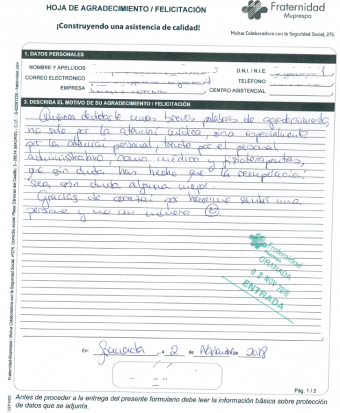 HOJA DE AGRADECIMIENTO / FELICITACIÓN
¡Construyendo una asistencia de calidad!
Fraternidad
Muprespa
Mutua Colaboradora con la Seguridad Social, 275.
1. DATOS PERSONALES
NOMBRE Y APELLIDOS
D.N.I. / N.I.E.
CORREO ELECTRÓNICO
TELÉFONO
EMPRESA
CENTRO ASISTENCIAL
2. DESCRIBA EL MOTIVO DE SU AGRADECIMIENTO / FELICITACIÓN
Quisiera dedicarle unas breves palabras de agradecimiento
no solo por la atención médica, sino especialmente
por la atención personal, tanto por el personal
administrativo, como médico y fisioterapeutas,
que sin duda han hecho que la recuperación
sea sin duda alguna mejor.
Gracias de corazón por hacerme sentir una
persona y no un número
Fraternidad
Muprespa
GRANADA
02 NOV 2018
ENTRADA
En Granada, a 2 de Noviembre 2018
Pág. 1 / 2
Antes de proceder a la entrega del presente formulario debe leer la información básica sobre protección
de datos que se adjunta.